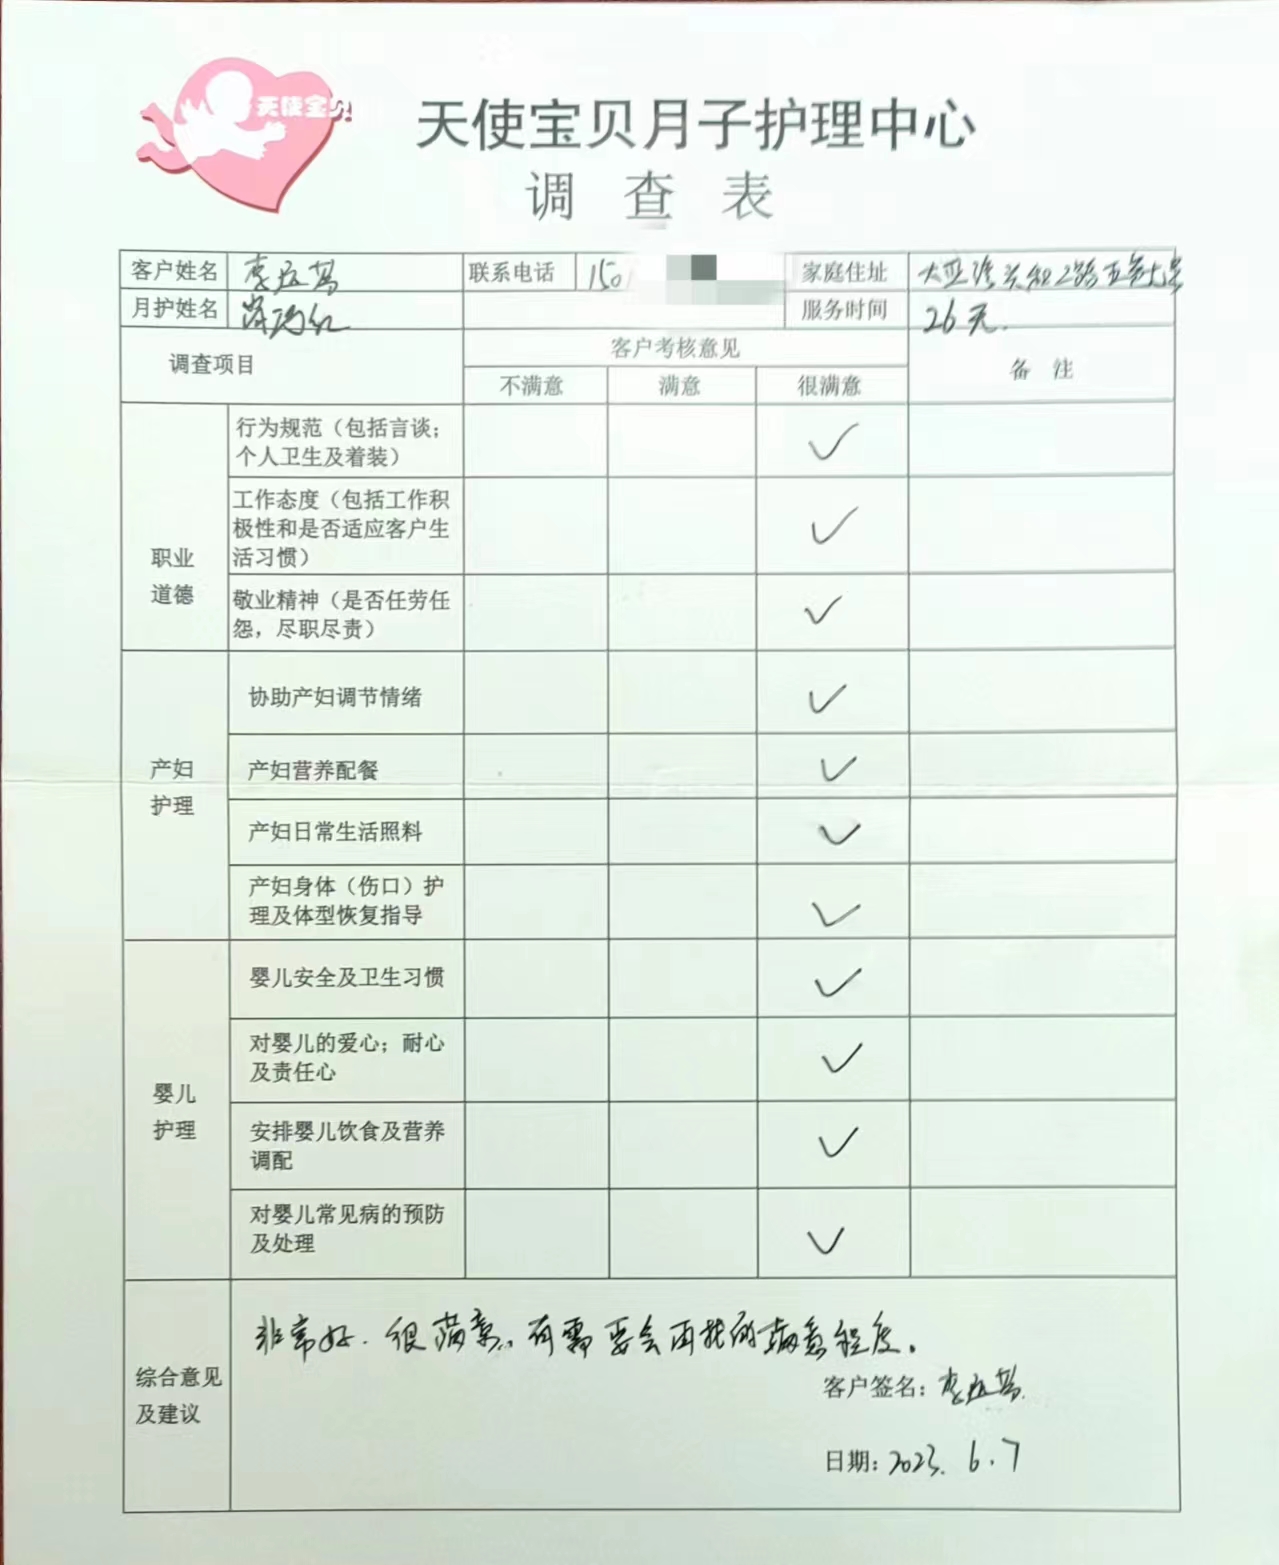 天使宝贝
天使宝贝月子护理中心
调查表
客户姓名 李 联系电话 150 家庭住址 大亚湾
月护姓名 红 服务时间 26天.
调查项目 客户考核意见 备 注
不满意 满意 很满意
职业
道德
行为规范（包括言谈；
个人卫生及着装）
工作态度（包括工作积
极性和是否适应客户生
活习惯）
敬业精神（是否任劳任
怨，尽职尽责）
产妇
护理
协助产妇调节情绪
产妇营养配餐
产妇日常生活照料
产妇身体（伤口）护
理及体型恢复指导
婴儿
护理
婴儿安全及卫生习惯
对婴儿的爱心；耐心
及责任心
安排婴儿饮食及营养
调配
对婴儿常见病的预防
及处理
综合意见
及建议
非常好. 很满意, 有需要会再找的满意程度.
客户签名：李
日期：2023. 6.7